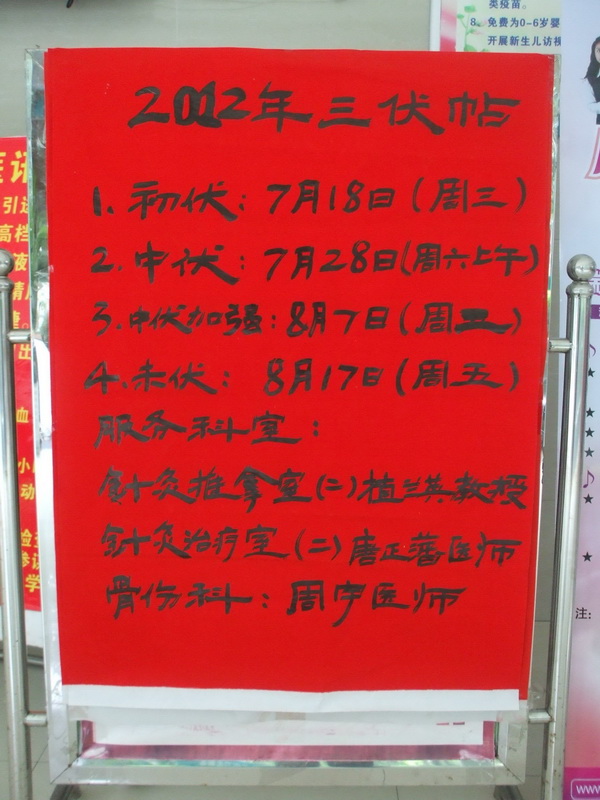 类疫苗。
8、免费为0-6岁婴
开展新生儿访视
2012年三伏帖
1.初伏:7月18日(周三)
2.中伏:7月28日(周六上午)
3.中伏加强:8月7日(周二)
4.末伏:8月17日(周五)
服务科室:
针灸推拿室(二)植兰英教授
针灸治疗室(二)唐正蕃医师
骨伤科:周宇医师
引进
高档
液
出
血
小
动
学
注:
www